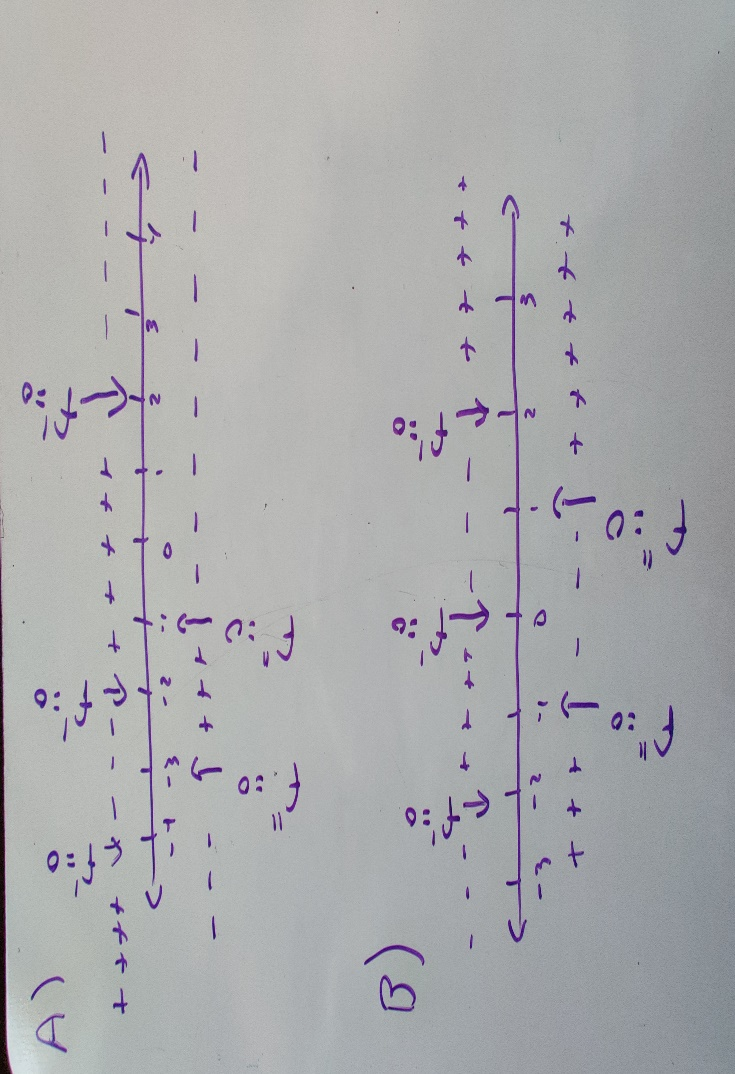 A)
f'=0 f'=0 f'=0
+ + + + - - - + + + + + - - - - -
-4 -3 -2 -1 0 1 2 3 4
- - - + + + - - - - - - - -
f''=0 f''=0
B)
f'=0 f'=0 f'=0
- - - + + + + - - - + + + + +
-3 -2 -1 0 1 2 3
+ + + - - - + + + + + +
f''=0 f''=0